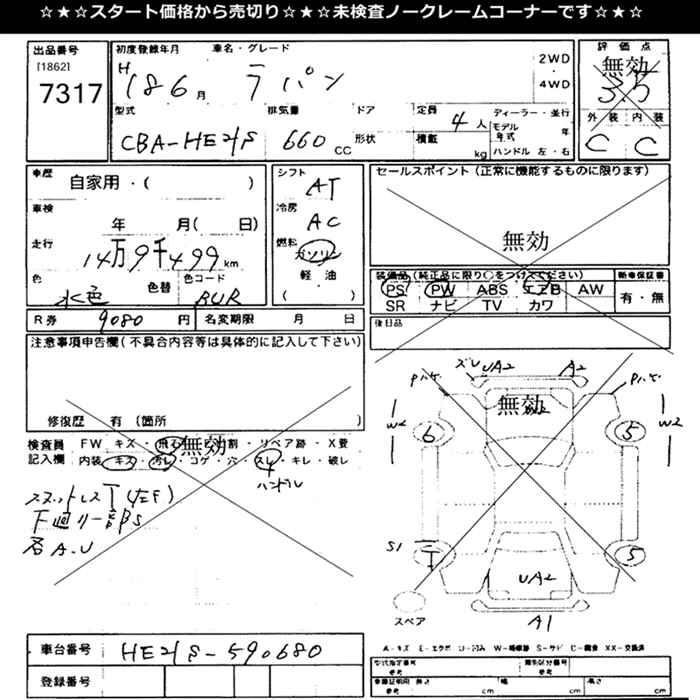 ☆★☆★スタート価格から売切り☆★☆★未検査ノークレームコーナーです☆★☆
出品番号
[1862]
7317
初度登録年月 車名・グレード
H 18 6 月 ラパン
2WD
4WD
型式 排気量 ドア 定員 ディーラー・並行
CBA-HE21S 660 CC 形状 4 人 積載 kg モデル年式 年 ハンドル 左・右
評価点
無効
3.5
外装 内装
C C
車歴
自家用・( )
車検
年 月( 日)
走行
14万9千499 km
色 色替 色コード
水色
R券 9080 円 名変期限 月 日
シフト
AT
冷房
AC
燃料
ガソリン
軽油
( )
セールスポイント (正常に機能するものに限ります)
無効
装備品(純正品に限り○をつけてください) 新車保証書
PS PW ABS エアB AW 有・無
SR ナビ TV カワ
後日品
注意事項申告欄(不具合内容等は具体的に記入して下さい)
修復歴 有 (箇所
検査員記入欄
FW キズ・飛石・ 割・リペア跡・X要
無効
内装・キズ・汚レ・コゲ・穴・スレ・キレ・破レ
ハンドル
スタットレス
各A.U
ズレ UA2 A2
無効
W2 6 5 W2
S1 5
UA2
スペア A1
A-キズ E-エクボ U-凹み W-補修跡 S-サビ C-腐食 XX-交換済
車台番号 HE21S-590680
登録番号
型式指定番号 類別区分番号
参考 参考
車庫証明用 長さ 幅 高さ
参考 cm cm cm